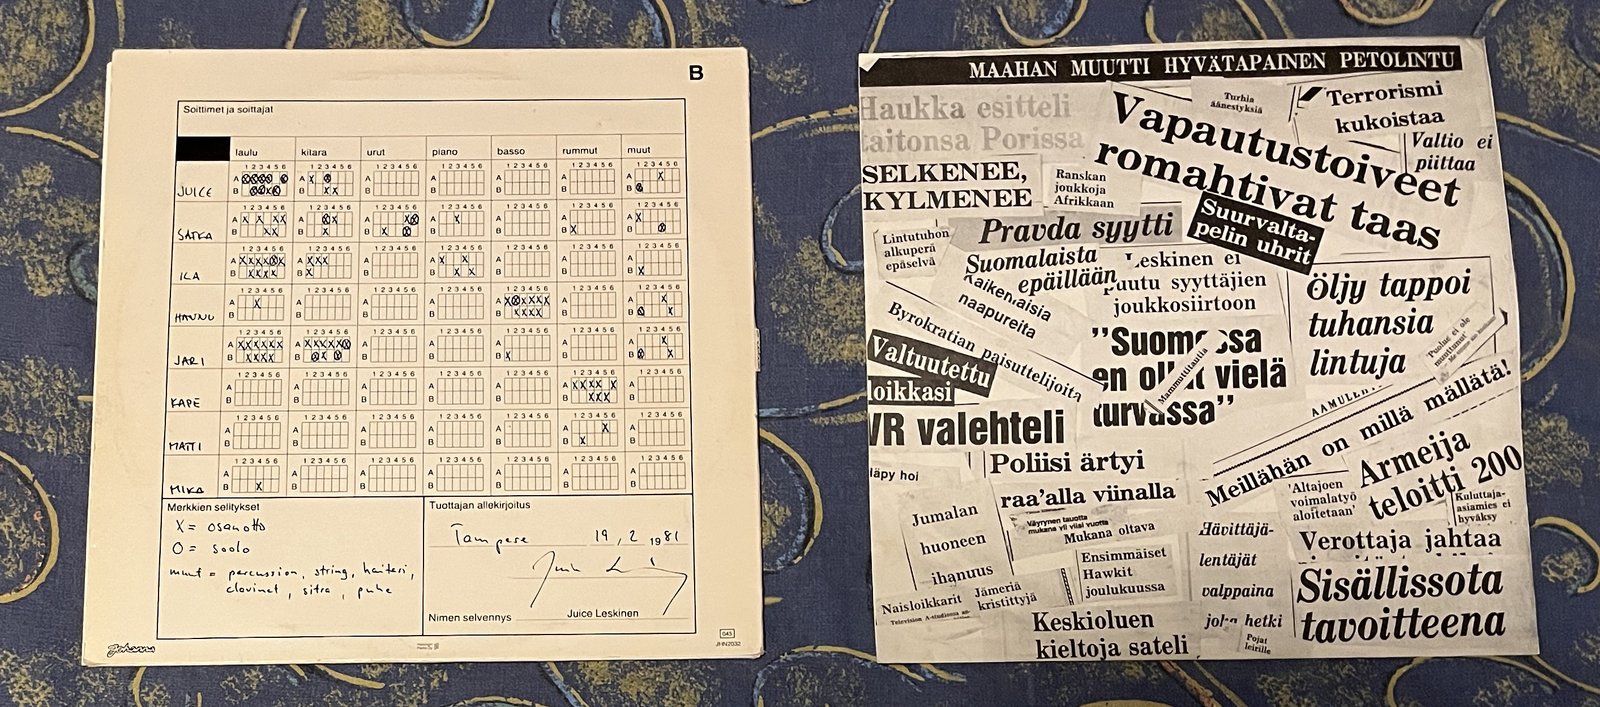 B
Soittimet ja soittajat
laulu kitara urut piano basso rummut muut
1 2 3 4 5 6 1 2 3 4 5 6 1 2 3 4 5 6 1 2 3 4 5 6 1 2 3 4 5 6 1 2 3 4 5 6 1 2 3 4 5 6
JUICE A B A B A B A B A B A B A B
SATKA A B A B A B A B A B A B A B
ILA A B A B A B A B A B A B A B
HANNU A B A B A B A B A B A B A B
JARI A B A B A B A B A B A B A B
KAPE A B A B A B A B A B A B A B
MATTI A B A B A B A B A B A B A B
MIKA A B A B A B A B A B A B A B
Merkkien selitykset
X = osanotto
O = soolo
muut = percussion, string, haitari,
clavinet, sitra, puhe
Tuottajan allekirjoitus
Tampere 19, 2 1981
Nimen selvennys Juice Leskinen
Johanna
043
JHN2032
MAAHAN MUUTTI HYVÄTAPAINEN PETOLINTU
Haukka esitteli
taitonsa Porissa
Turhia
äänestyksiä
Terrorismi
kukoistaa
Vapautustoiveet
romahtivat taas
Valtio ei
piittaa
SELKENEE,
KYLMENEE
Ranskan
joukkoja
Afrikkaan
Suurvalta-
pelin uhrit
Lintutuhon
alkuperä
epäselvä
Pravda syytti
Suomalaista
epäillään
Leskinen ei
puutu syyttäjien
joukkosiirtoon
öljy tappoi
tuhansia
lintuja
Kaikenlaisia
naapureita
Byrokratian paisuttelijoita
"Suomessa
en ollut vielä
turvassa"
Mammuttitautia
Valtuutettu
loikkasi
AAMULEH
Meillähän on millä mällätä!
VR valehteli
läpy hoi
Poliisi ärtyi
raa'alla viinalla
Armeija
teloitti 200
'Altajoen
voimalatyö
aloitetaan'
Kuluttaja-
asiamies ei
hyväksy
Jumalan
huoneen
ihanuus
Väyrynen tauotta
mukana yli viisi vuotta
Mukana oltava
Hävittäjä-
lentäjät
valppaina
joka hetki
Verottaja jahtaa
Ensimmäiset
Hawkit
joulukuussa
Sisällissota
tavoitteena
Naisloikkarit
Jämeriä
kristittyjä
Keskioluen
kieltoja sateli
Pojat
leirille